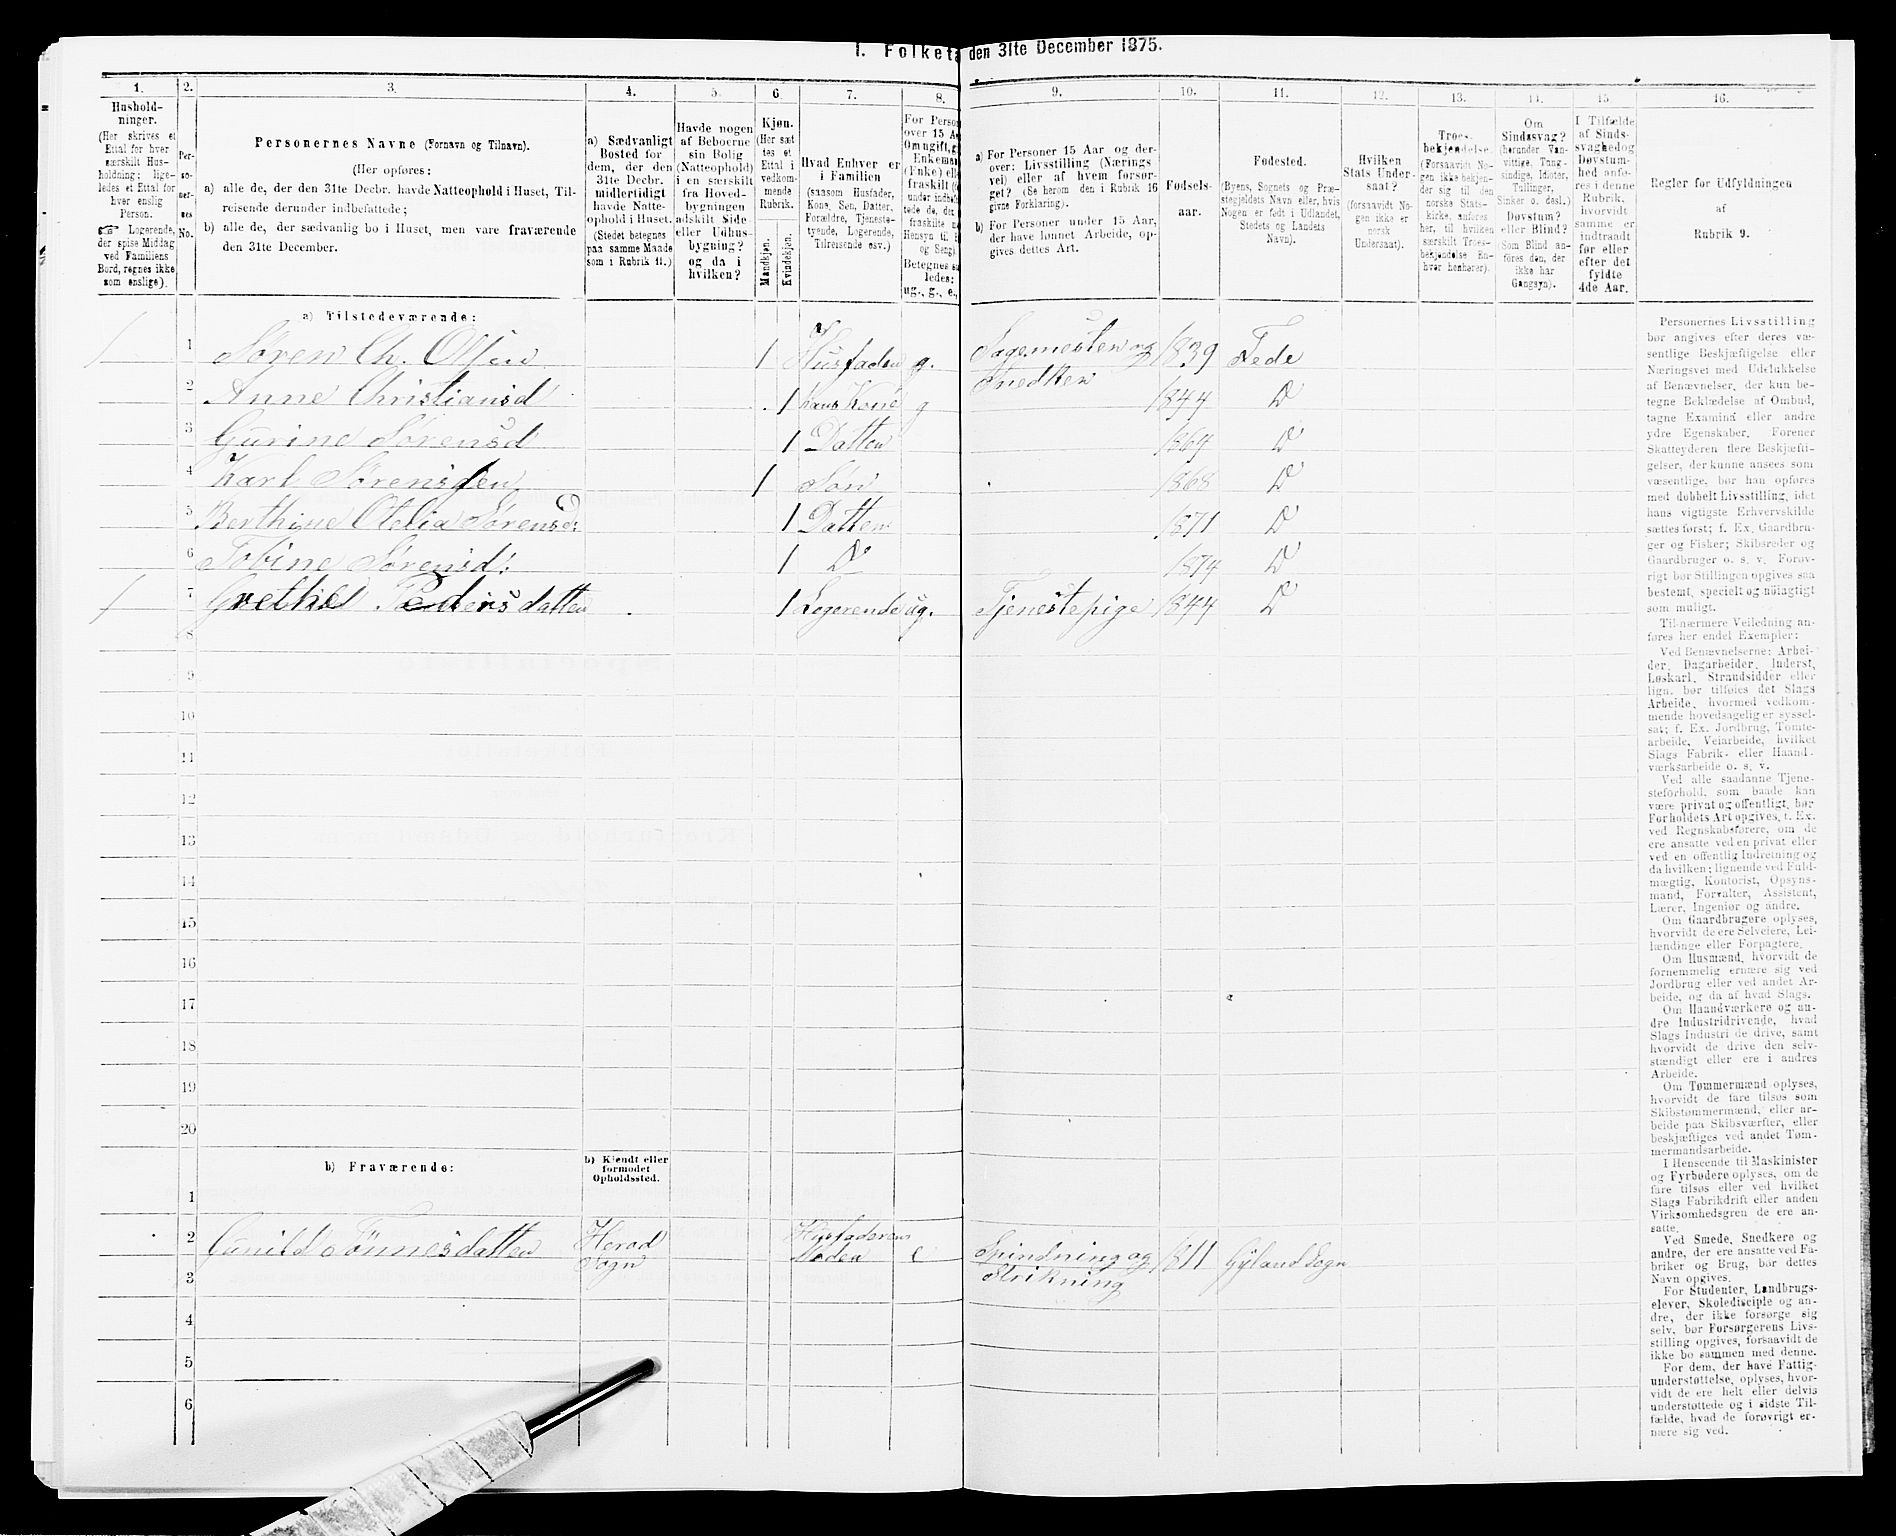 1. Folketæ den 31te December 1875.
1. 2. 3. 4. 5. 6. 7. 8. 9. 10. 11. 12. 13. 14. 15. 16.
Hushold-
ninger.
(Her skrives et
Ettal for hver
særskilt Hus-
holdning; lige-
ledes et Ettal for
hver enslig
Person.
☞ Logerende,
der spise Middag
ved Familiens
Bord, regnes ikke
som enslige).
Per-
so-
ner-
nes
No.
Personernes Navne (Fornavn og Tilnavn).
(Her opføres:
a) alle de, der den 31te Decbr. havde Natteophold i Huset, Til-
reisende derunder indbefattede;
b) alle de, der sædvanlig bo i Huset, men vare fraværende
den 31te December.
a) Sædvanligt
Bosted for
dem, der den
31te Decbr.
midlertidigt
havde Natte-
ophold i Huset.
(Stedet betegnes
paa samme Maade
som i Rubrik 11.)
Havde nogen
af Beboerne
sin Bolig
(Natteophold)
i en særskilt
fra Hoved-
bygningen
adskilt Side-
eller Udhus-
bygning?
og da i
hvilken?
Kjøn.
(Her sæt-
tes et
Ettal i
vedkom-
mende
Rubrik.
Mandkjøn.
Kvindekjøn.
Hvad Enhver er
i Familien
(saasom Husfader,
Kone, Søn, Datter,
Forældre, Tjeneste-
tyende, Logerende,
Tilreisende osv.)
For Perso
over 15 A
Om ugift, g
Enkema
(Enke) elle
fraskilt (
under indbe
tede de, de
fraskilte
Hensyn til
og Seng)
Betegnes s
ledes:
ug., g., e.,
a) For Personer 15 Aar og der-
over: Livsstilling (Nærings
vei) eller af hvem forsør-
get? (Se herom den i Rubrik 16
givne Forklaring).
b) For Personer under 15 Aar,
der have lønnet Arbeide, op-
gives dettes Art.
Fødsels-
aar.
Fødested.
(Byens, Sognets og Præ-
stegjeldets Navn eller, hvis
Nogen er født i Udlandet,
Stedets og Landets
Navn).
Hvilken
Stats Under-
saat?
(forsaavidt No-
gen ikke er
norsk
Undersaat).
Troes-
bekjendelse.
(Forsaavidt No-
gen ikke bekjen-
der sig til den
norske Stats-
kirke, anføres
her, til hvilken
særskilt Troes-
bekjendelse En-
hver henhører).
Om
Sindssvag?
(herunder Van-
vittige, Tung-
sindige, Idioter,
Tullinger,
Sinker o. desl.)
Døvstum?
eller Blind?
(Som Blind an-
føres den, der
ikke har
Gangsyn).
I Tilfælde
af Sinds-
svaghed og
Døvstum-
hed anfø-
res i denne
Rubrik,
hvorvidt
samme er
indtraadt
før eller
efter det
fyldte
4de Aar.
Regler for Udfyldningen
af
Rubrik 9.
a) Tilstedeværende:
1 1 Søren Ch. Olsen 1 Husfader g. Sagemester og Snedker 1839 Fede
2 Anne Christiansd 1 hans Kone g 1844 Do
3 Gurine Sørensd 1 Datter 1864 Do
4 Karl Sørensen 1 Søn 1868 Do
5 Berthine Otelia Sørensd: 1 Datter 1871 Do
6 Tobine Sørensd: 1 Do 1874 Do
1 7 Grethe Pedersdatter 1 Logerende ug. Tjenestepige 1844 Do
8
9
10
11
12
13
14
15
16
17
18
19
20
b) Fraværende:
b) Kjendt eller
formodet
Opholdssted.
1
2 Gunild Tønnesdatter Herad Sogn Husfaderens Moder e Spindning og Strikning 1811 Gyland Sogn
3
4
5
6
Personernes Livsstilling
bør angives efter deres væ-
sentlige Beskjæftigelse eller
Næringsvei med Udelukkelse
af Benævnelser, der kun be-
tegne Beklædelse af Ombud,
tagne Examina eller andre
ydre Egenskaber. Forener
Skatteyderen flere Beskjæfti-
gelser, der kunne ansees som
væsentlige, bør han opføres
med dobbelt Livsstilling, idet
hans vigtigste Erhvervskilde
sættes først; f. Ex. Gaardbru-
ger og Fisker; Skibsreder og
Gaardbruger o. s. v. Forøv-
rigt bør Stillingen opgives saa
bestemt, specielt og nøiagtigt
som muligt.
Til nærmere Veiledning an-
føres her endel Exempler:
Ved Benævnelserne: Arbei-
der, Dagarbeider, Inderst,
Løskarl, Strandsidder eller
lign. bør tilføies det Slags
Arbeide, hvormed vedkom-
mende hovedsagelig er syssel-
sat; f. Ex. Jordbrug, Tomte-
arbeide, Veiarbeide, hvilket
Slags Fabrik- eller Haand-
værksarbeide o. s. v.
Ved alle saadanne Tjene-
steforhold, som baade kan
være privat og offentligt, bør
Forholdets Art opgives, t. Ex.
ved Regnskabsførere, om de
ere ansatte ved en privat eller
ved en offentlig Indretning og
da hvilken; lignende ved Fuld-
mægtig, Kontorist, Opsyns-
mand, Forvalter, Assistent,
Lærer, Ingeniør og andre.
Om Gaardbrugere oplyses,
hvorvidt de ere Selveiere, Lei-
lændinge eller Forpagtere.
Om Husmænd, hvorvidt de
fornemmelig ernære sig ved
Jordbrug eller ved andet Ar-
beide, og da af hvad Slags.
Om Haandværkere og an-
dre Industridrivende, hvad
Slags Industri de drive, samt
hvorvidt de drive den selv-
stændigt eller ere i andres
Arbeide.
Om Tømmermænd oplyses,
hvorvidt de fare tilsøs som
Skibstømmermænd, eller ar-
beide paa Skibsværfter, eller
beskjæftiges ved andet Tøm-
mermandsarbeide.
I Henseende til Maskinister
og Fyrbødere oplyses, om de
fare tilsøs eller ved hvilket
Slags Fabrikdrift eller anden
Virksomhedsgren de ere an-
satte.
Ved Smede, Snedkere og
andre, der ere ansatte ved Fa-
briker og Brug, bør dettes
Navn opgives.
For Studenter, Landbrugs-
elever, Skoledisciple og an-
dre, der ikke forsørge sig
selv, bør Forsørgerens Livs-
stilling opgives, forsaavidt de
ikke bo sammen med denne.
For dem, der have Fattig-
understøttelse, oplyses, hvor-
vidt de ere helt eller delvis
understøttede og i sidste Til-
fælde, hvad de forøvrigt er-
nære sig ved.